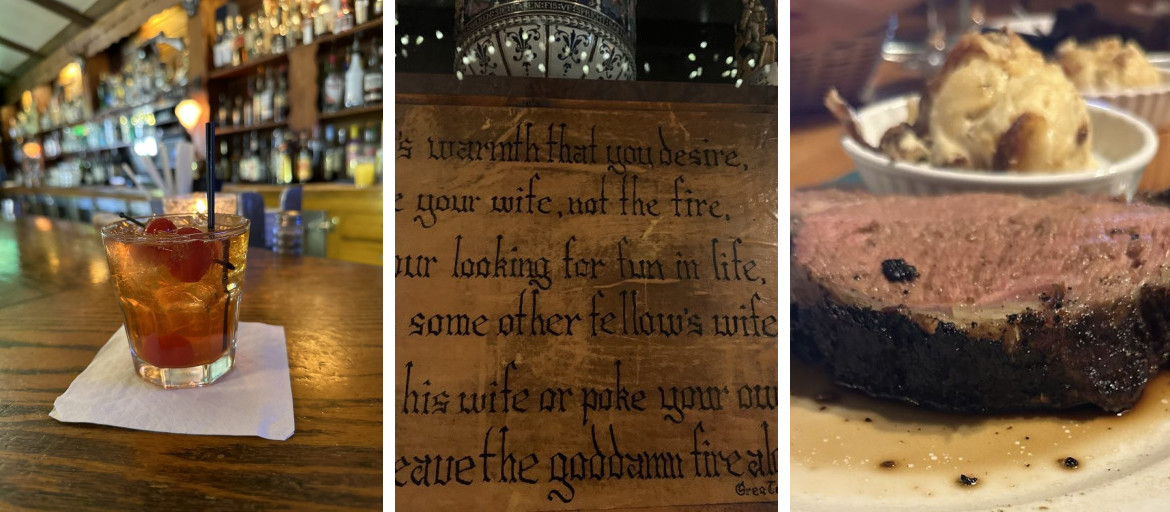 warmth that you desire,
your wife, not the fire,
looking for fun in life,
some other fellow's wife
his wife or poke your
the goddamn fire